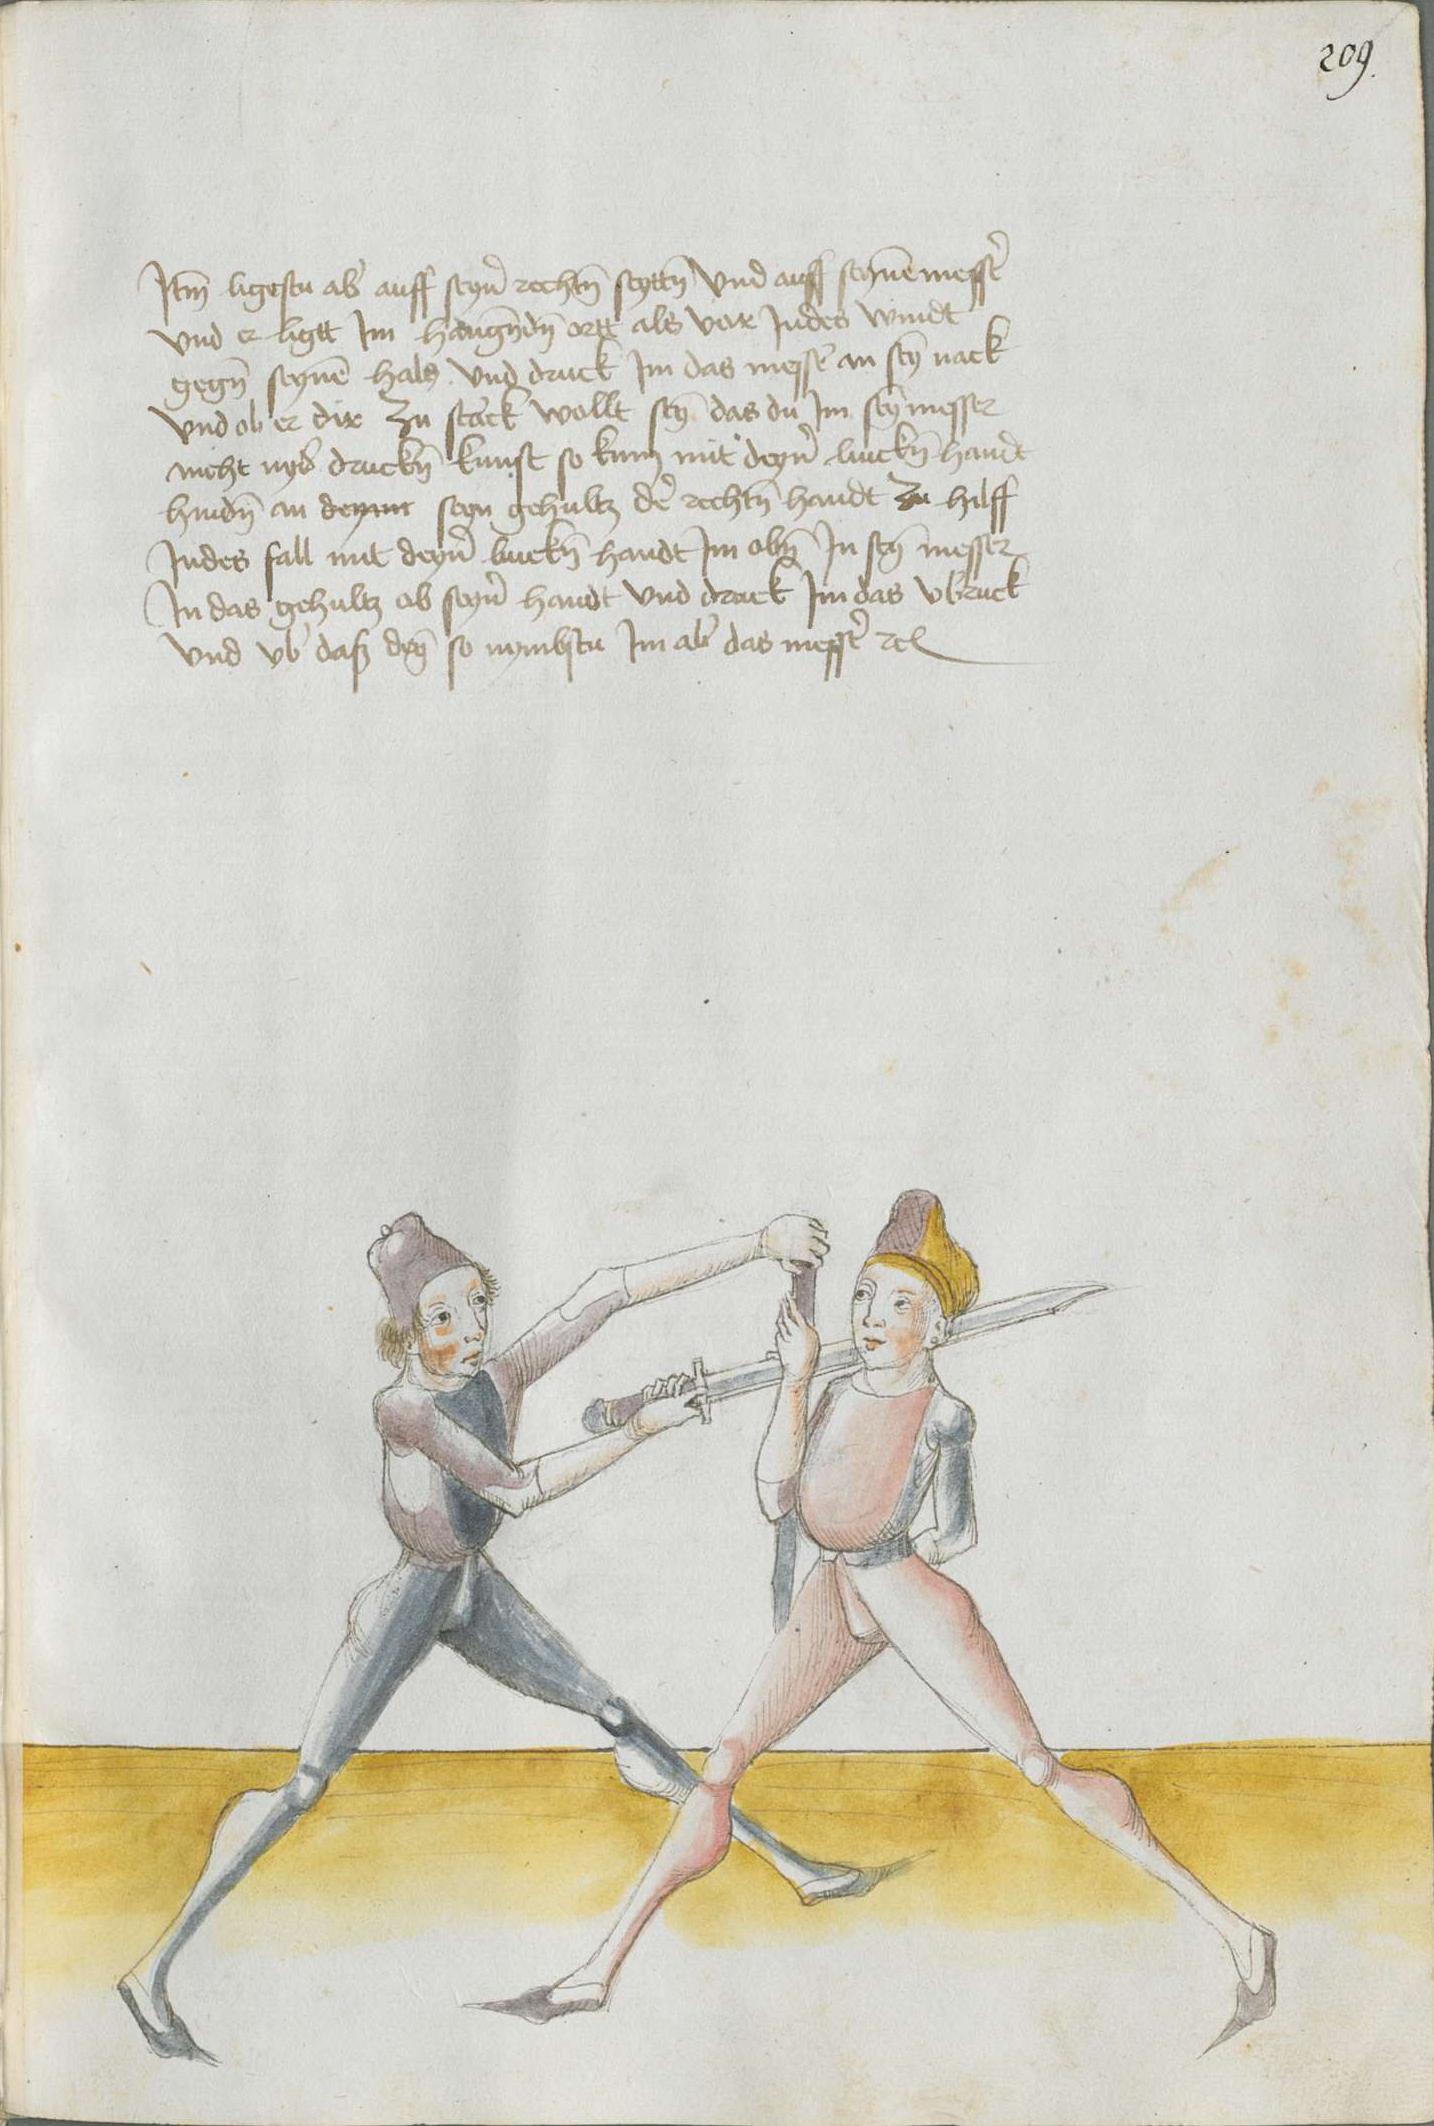 209.
Itm̄ ligestu ab' auff seyn' rechtn̄ seyttn̄ Vnd auff seynē mess'
vnd er ligtt Im hangn̄dn̄ ortt als vor Indes windt
gegn̄ seynē hals Vnd druck Im das mess' an sey̅ nack
vnd ob er dir Zu starck wollt sey̅ das du Im sey̅ messer
nicht nyd' druckn̄ kunst so kum mit deyn' linckn̄ handt
hindn̄ an seyn gehultz d' rechtn̄ handt Zu hilff
Indes fall mit deyn' linckn̄ handt Im obn̄ In sey̅ messer
In das gehultz ob seyn' handt Vnd druck Im das vb'ruck
vnd vb' so nymbstu Im ab' das mess' rc